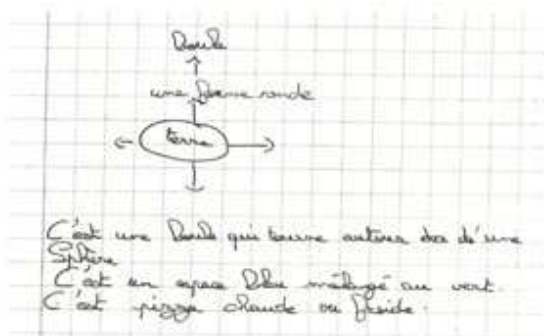 Boule
une forme ronde
terre
C'est une Boule qui tourne autour d'une
Sphère
C'est un espace bleu mélangé au vert.
C'est chaude ou froide.